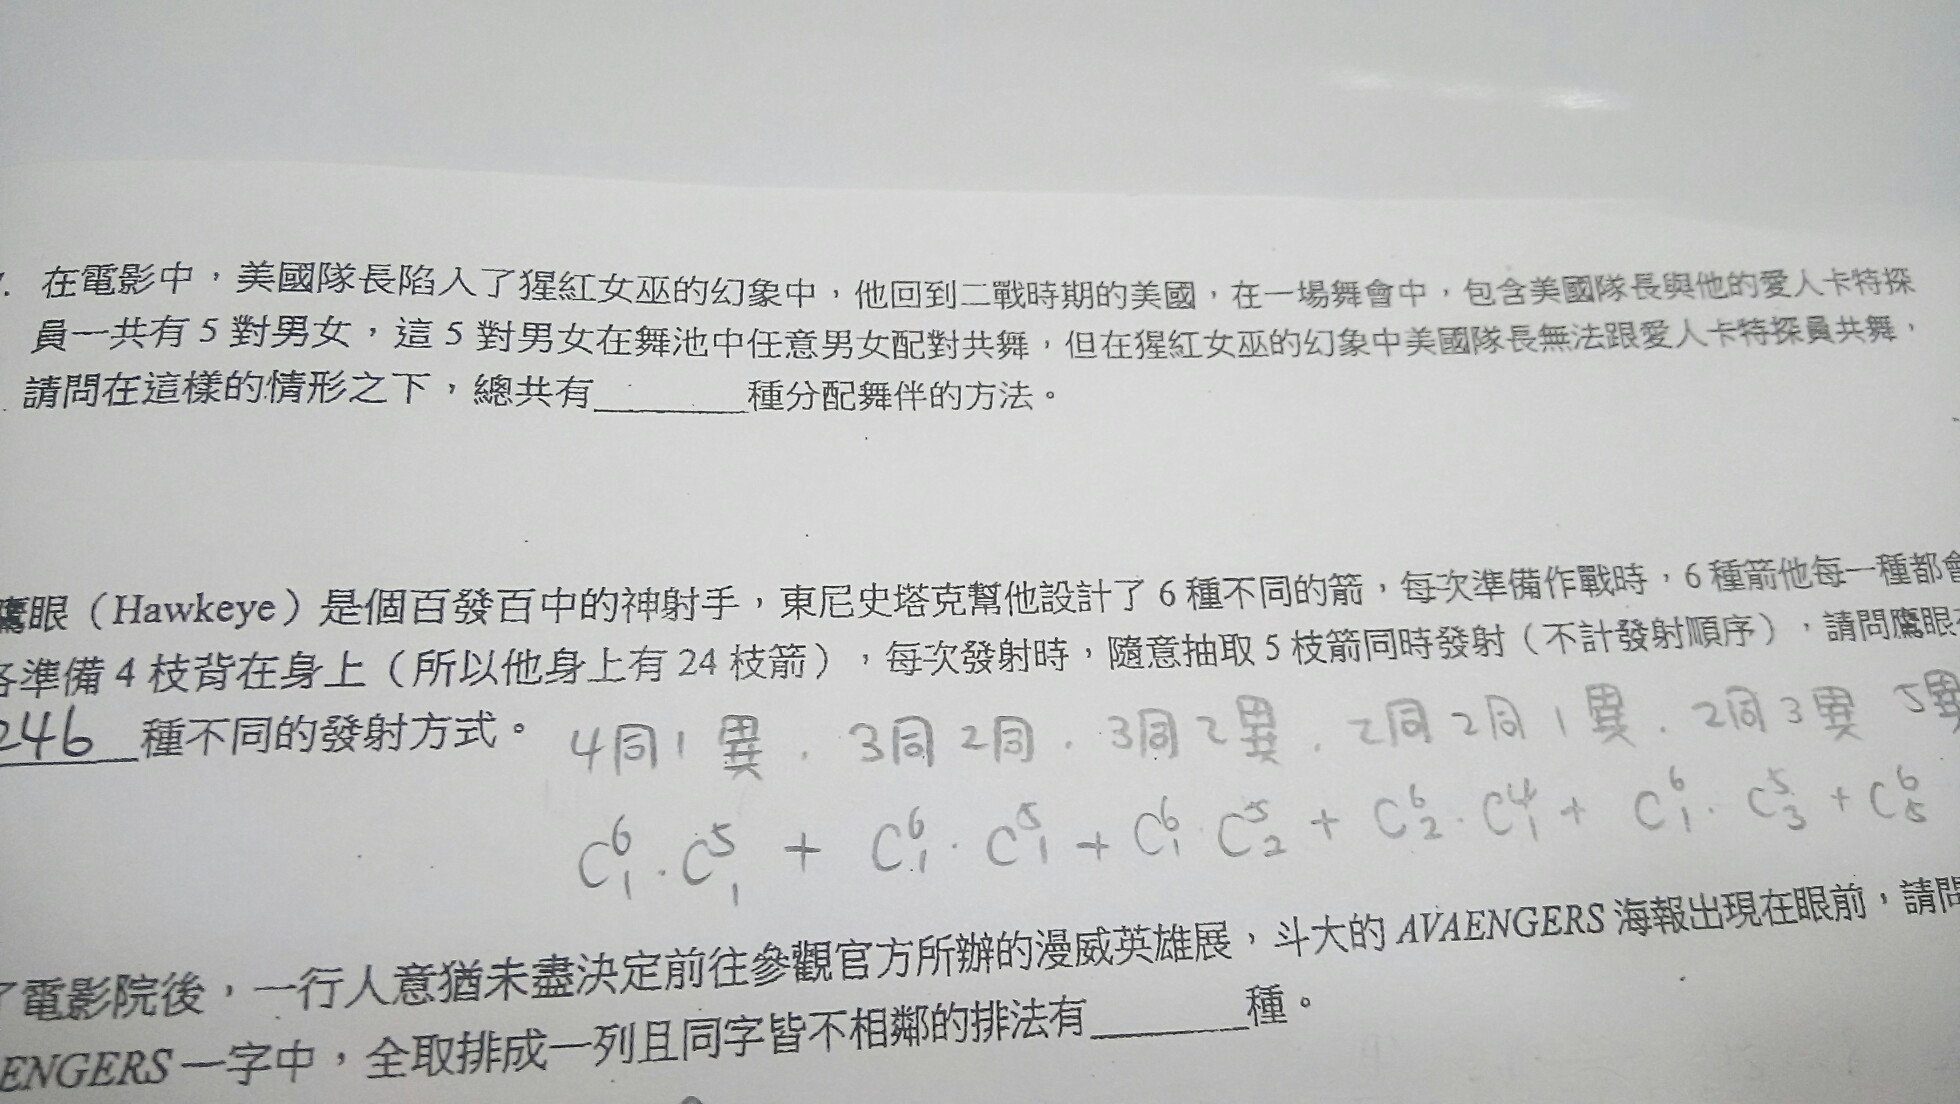 . 在電影中，美國隊長陷入了猩紅女巫的幻象中，他回到二戰時期的美國，在一場舞會中，包含美國隊長與他的愛人卡特探
員一共有 5 對男女，這 5 對男女在舞池中任意男女配對共舞，但在猩紅女巫的幻象中美國隊長無法跟愛人卡特探員共舞，
請問在這樣的情形之下，總共有______種分配舞伴的方法。
鷹眼（Hawkeye）是個百發百中的神射手，東尼史塔克幫他設計了 6 種不同的箭，每次準備作戰時，6 種箭他每一種都會
各準備 4 枝背在身上（所以他身上有 24 枝箭），每次發射時，隨意抽取 5 枝箭同時發射（不計發射順序），請問鷹眼有
246 種不同的發射方式。 4同1異. 3同2同. 3同2異. 2同2同1異. 2同3異 5異
C⁶₁·C⁵₁ + C⁶₁·C⁵₁ + C⁶₁·C⁵₂ + C⁶₂·C⁴₁ + C⁶₁·C⁵₃ + C⁶₅
了電影院後，一行人意猶未盡決定前往參觀官方所辦的漫威英雄展，斗大的 AVAENGERS 海報出現在眼前，請問
ENGERS 一字中，全取排成一列且同字皆不相鄰的排法有______種。